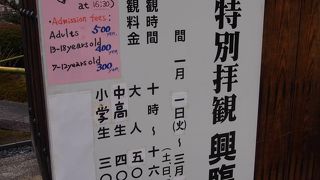 at 16:30)
・Admission fees:
Adults 500 yen
13-18 years old 400 yen
7-12 years old 300 yen
特別拝観 興臨
間 一月一日(火)～三月
(土日
観時間 十時～十六
観料金 大人 五〇
中高生 四〇
小学生 三〇